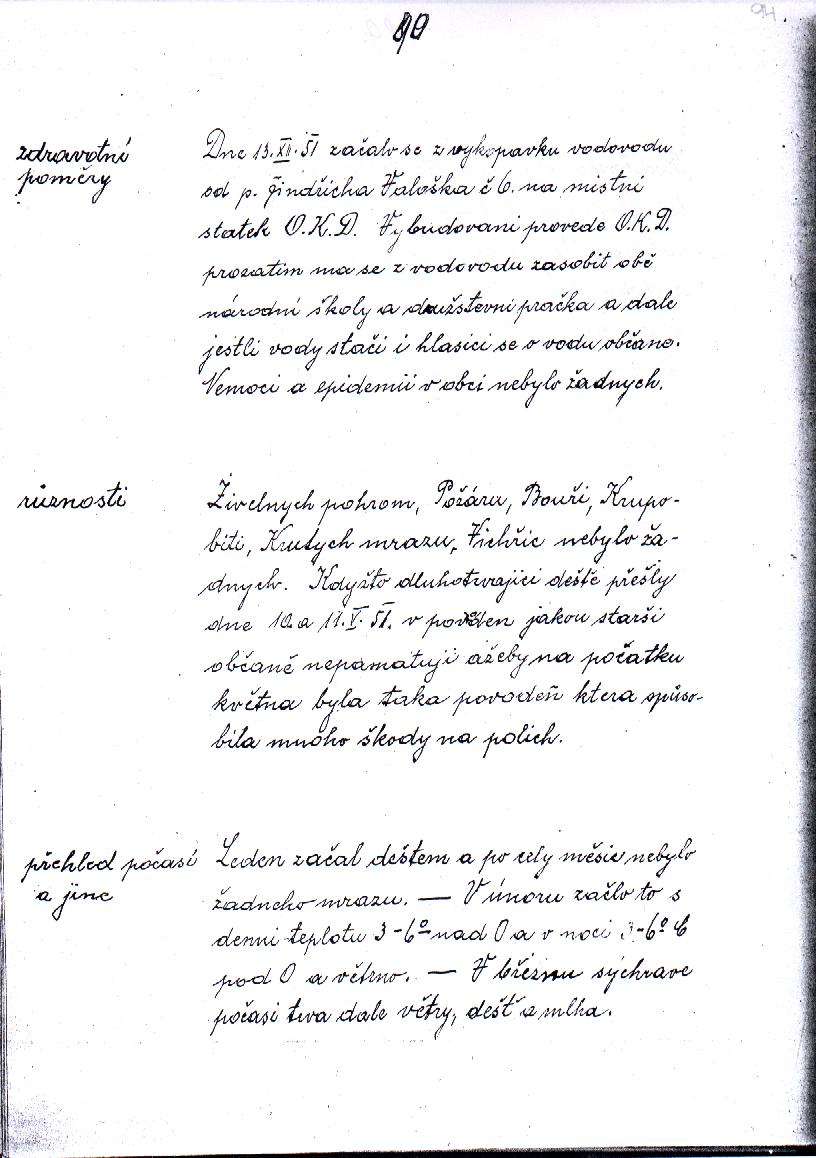 90
94
zdravotní
poměry
Dne 13.XII.51 začalo se z vykopavku vodovodu
od p. Jindřicha Valoška č 6. na mistni
statek O.K.D. Vybudovani provede O.K.D.
prozatim ma se z vodovodu zasobit obě
národní školy a družstevni pračka a dale
jestli vody stači i hlasici se o vodu občane.
Nemoci a epidemii v obci nebylo žadnych.
různosti
Živelnych pohrom, Požáru, Bouři, Krupo-
biti, Krutych mrazu, Vichřic nebylo ža-
dnych. Kdyžto dluhotrvajici deště přešly
dne 10. a 11.V.51. v povoden jakou starši
občaně nepamatuji ažeby na počatku
května byla taka povodeň ktera způso-
bila mnoho škody na polich.
přehled počasí
a jine
Leden začal deštem a po cely měsic nebylo
žadneho mrazu. — V únoru začlo to s
denni teplotu 3-6° nad 0 a v noci 3-6° C
pod 0 a větrno. — V březnu sychrave
počasi trva dale větry, dešť a mlha.